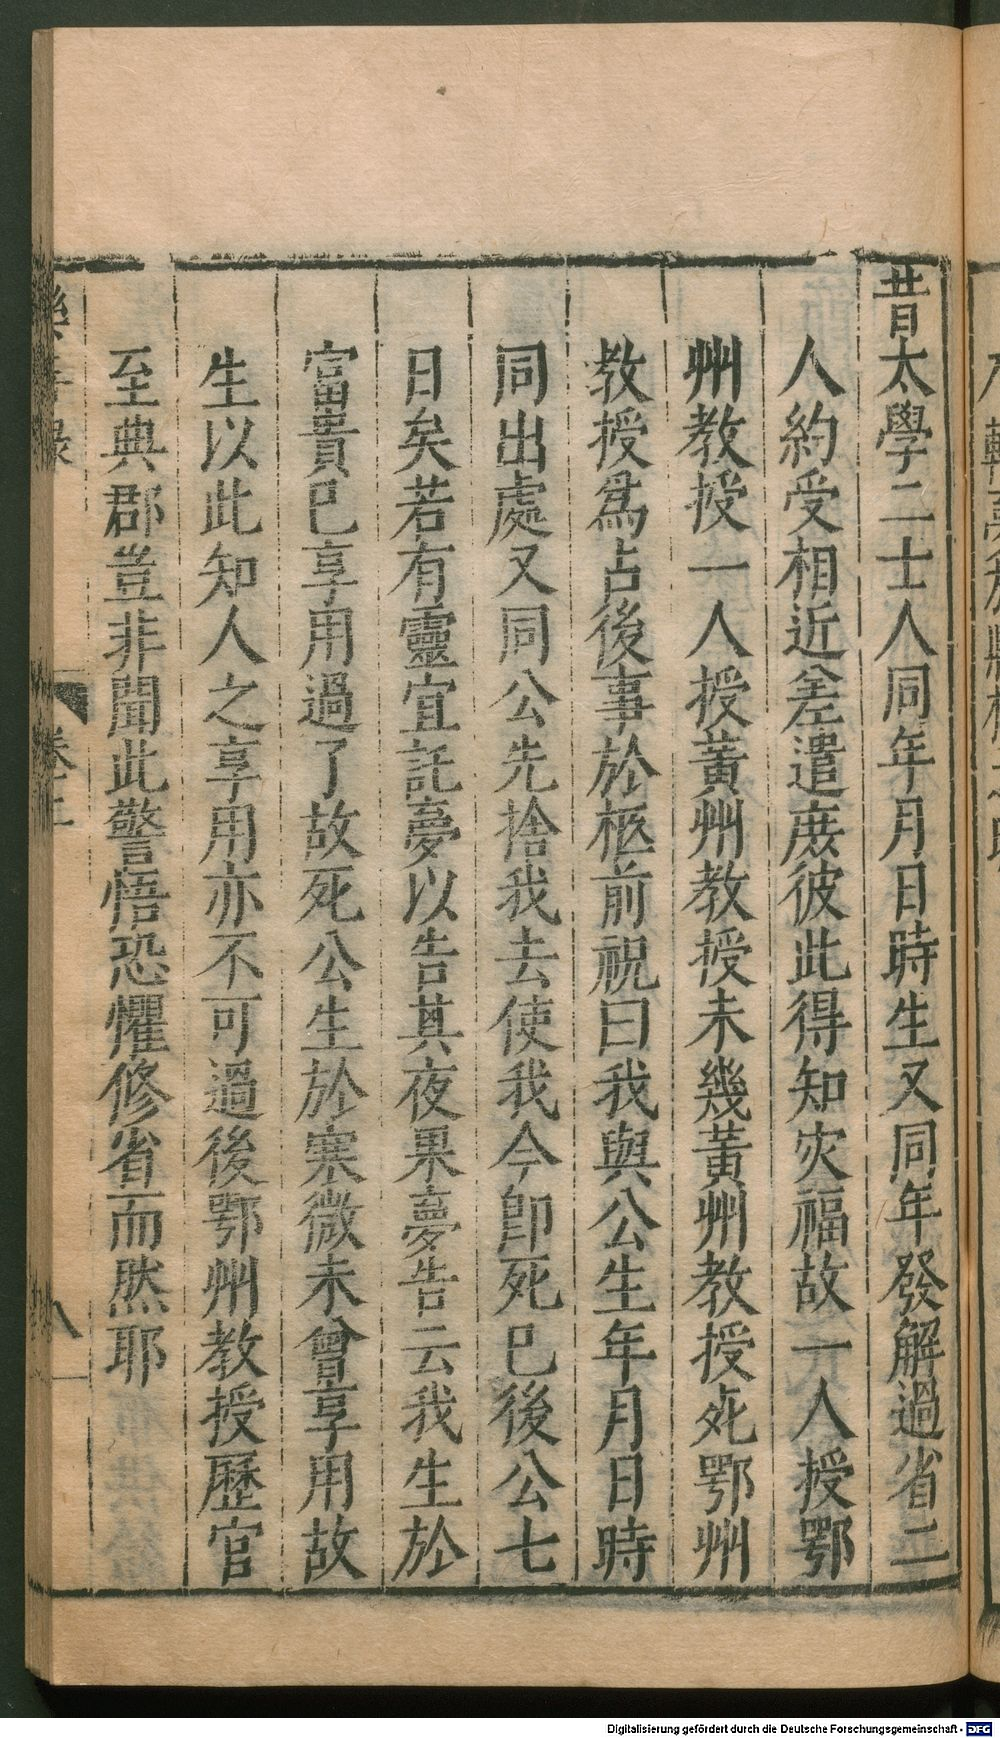 昔太學二士人同年月日時生又同年發解過省二
人約受相近差遣庶彼此得知灾福故一人授鄂
州教授一人授黃州教授未幾黃州教授死鄂州
教授爲占後事於柩前祝曰我與公生年月日時
同出處又同公先捨我去使我今卽死已後公七
日矣若有靈宜託夢以告其夜果夢告云我生於
富貴已享用過了故死公生於寒微未曾享用故
生以此知人之享用亦不可過後鄂州教授歷官
至典郡豈非聞此警悟恐懼修省而然耶
八
Digitalisierung gefördert durch die Deutsche Forschungsgemeinschaft - DFG